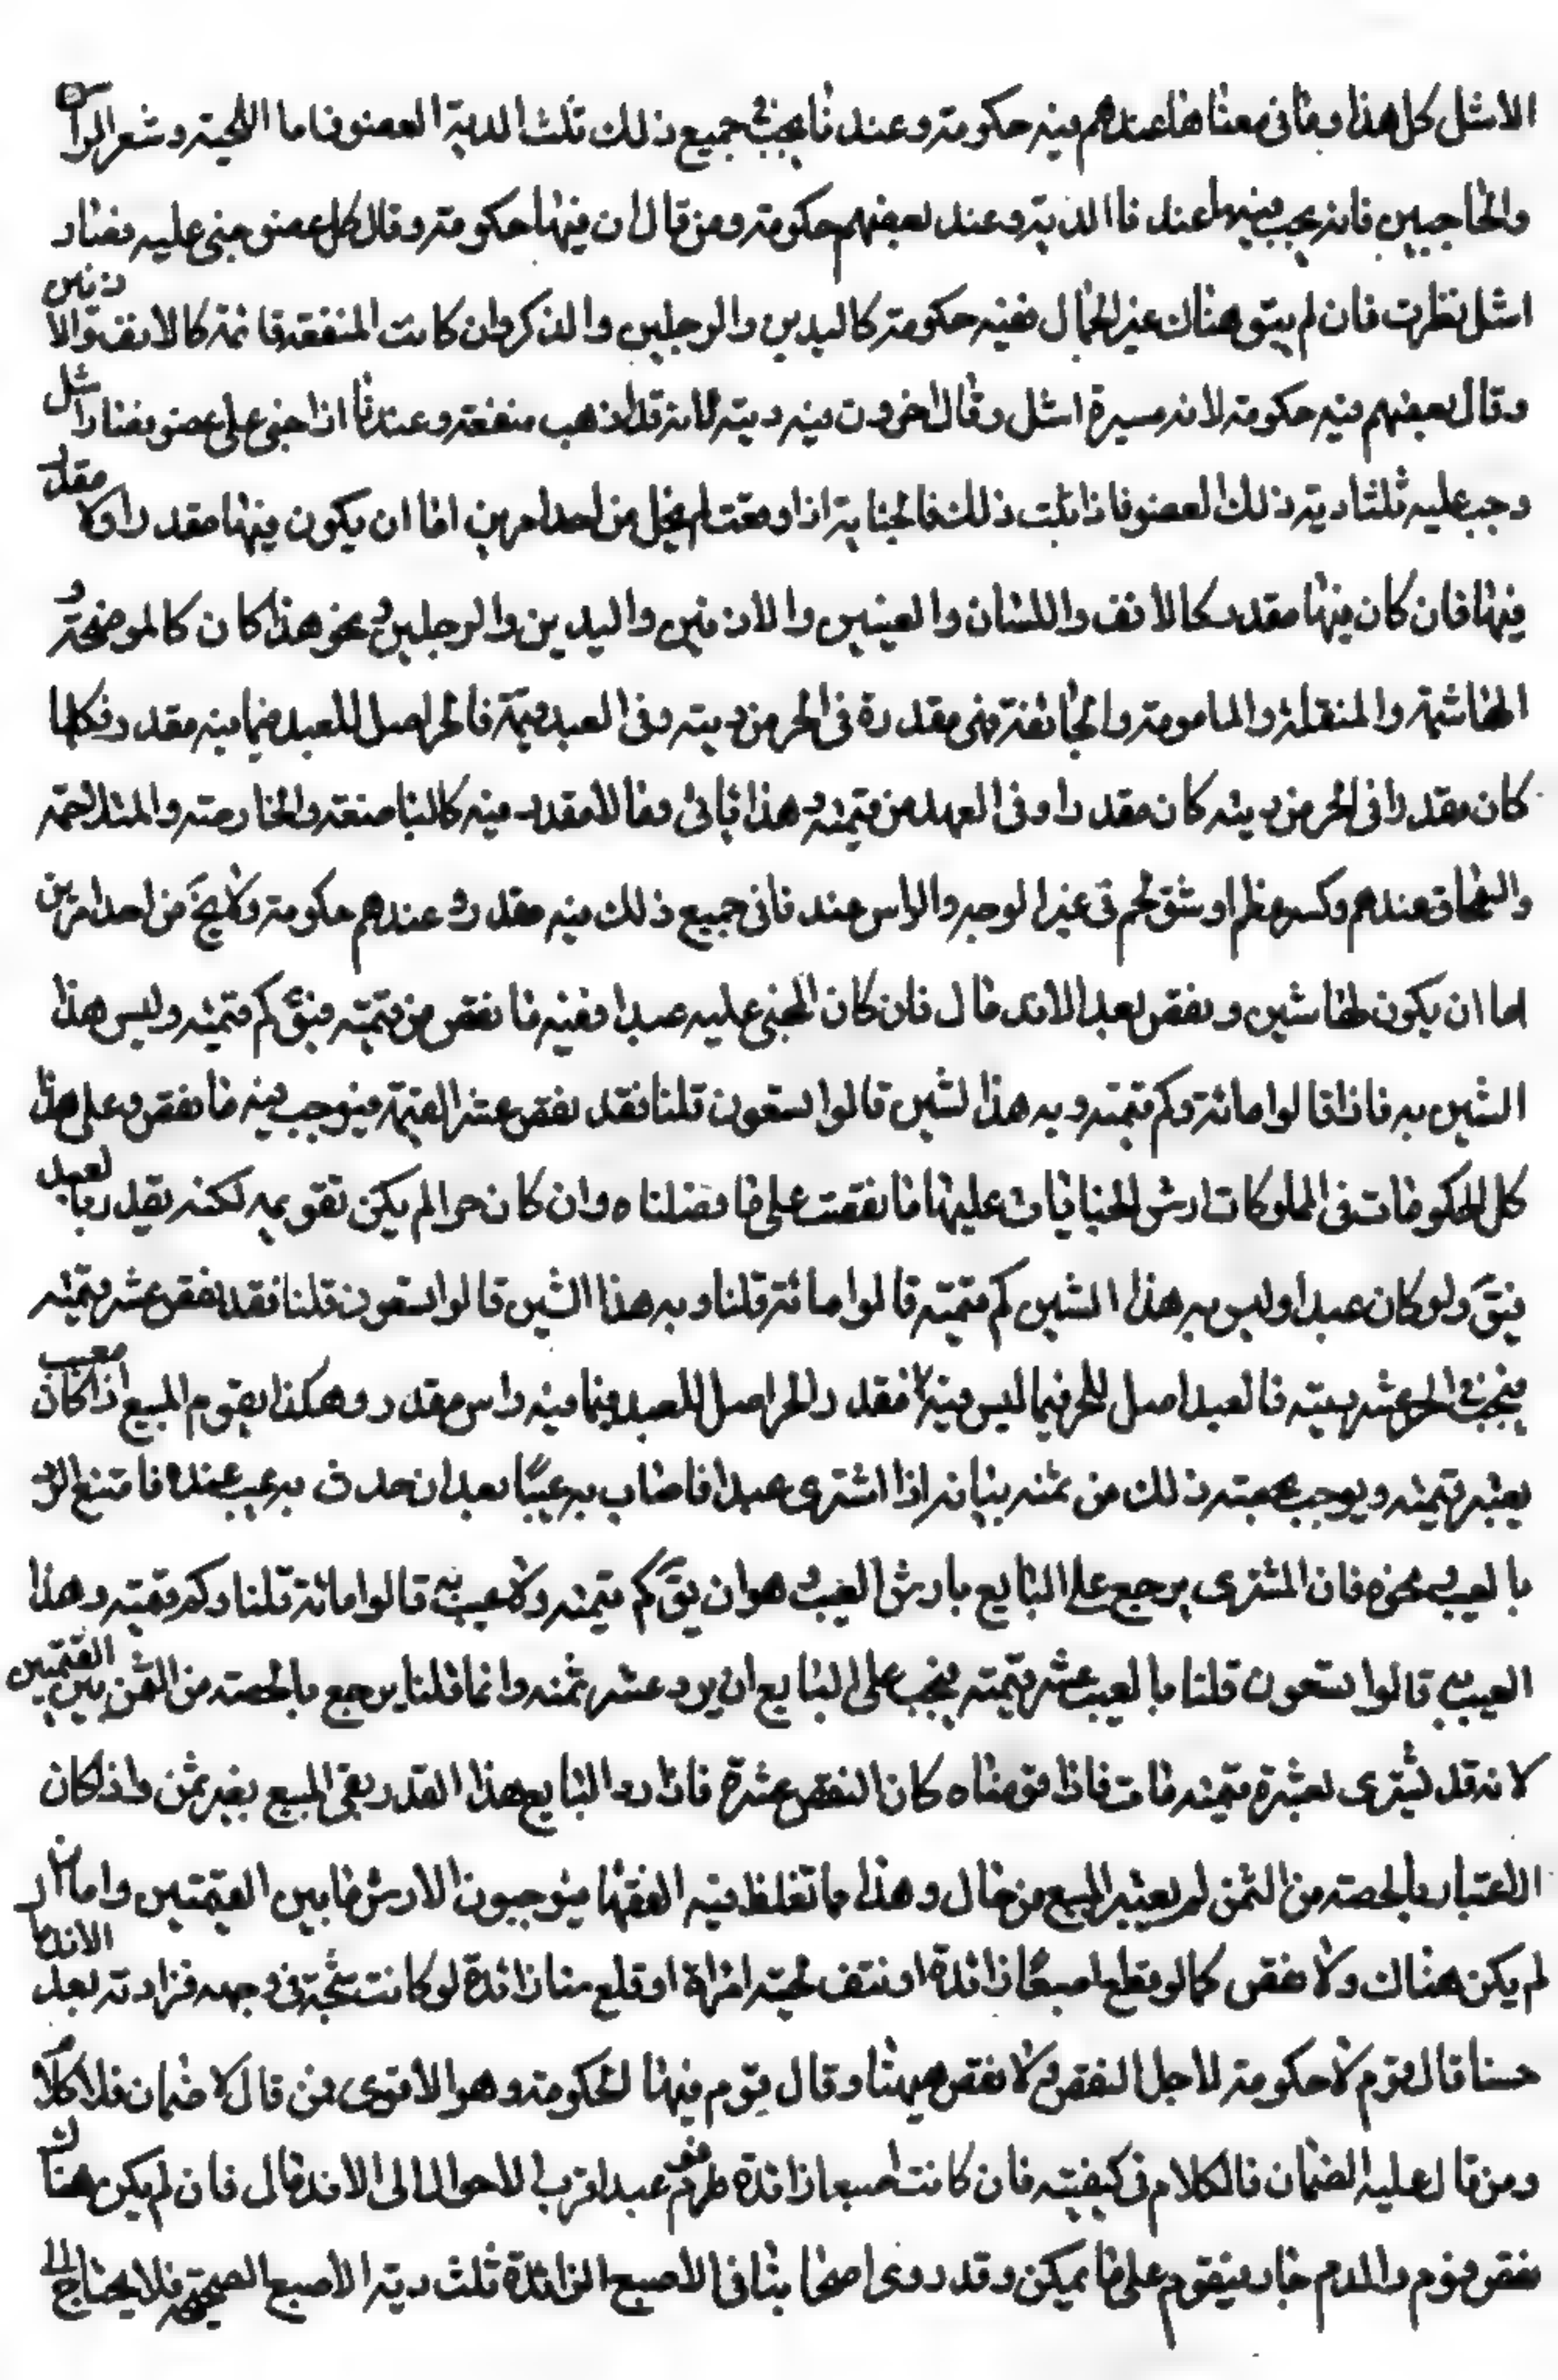 الاشل كل هذا وما فى معناها عندهم فيه حكومة وعندنا يجب فى جميع ذلك ثلث الدية العضو فاما اللحية وشعر الراس
والحاجبين فانه يجب فيهما عندنا الدية وعند بعضهم حكومة ومن قال ان فيها حكومة وقال كل عضو جنى عليه فصار
اشل نظرت فان لم يبق هناك غير الجمال ففيه حكومة كاليدين والرجلين والذكر وان كانت المنفعة قائمة كالانف والاذنين
وقال بعضهم فيه حكومة لانه صيره اشل وقال اخرون فيه ديته لانه قد اذهب منفعته وعندنا اذا جنى على عضو فصار اشل
وجب عليه ثلثا دية ذلك العضو فاذا ثبت ذلك فالجناية اذا وقعت لم يخل من احد امرين اما ان يكون فيها مقدر اولا مقدر
فيها فان كان فيها مقدر كالانف واللسان والعينين والاذنين واليدين والرجلين ونحو هذا كان كالموضحة و
الهاشمة والمنقلة والمامومة والجائفة فهى مقدرة فى الحر من ديته وفى العبد من قيمته فالحر اصل للعبد فيما فيه مقدر فكلما
كان مقدرا فى الحر من ديته كان مقدرا وفى العبد من قيمته وهذا ياتى وما لا مقدر فيه كالباضعة والخارصة والمتلاحمة
والسمحاق عندهم وكسر عظم او شق لحم فى غير الوجه والراس عندنا فى جميع ذلك فيه مقدر وعندهم حكومة ولا يخ من احد امرين
اما ان يكون لها شين وينقص بعد الاندمال فان كان المجنى عليه عبدا ففيه ما نقص من قيمته فيق كم قيمته وليس هذا
الشين به فاذا قالوا مائة وكم قيمته وبه هذا الشين قالوا تسعون قلنا فقد نقص عشر القيمة فيوجب فيه ما نقص وعلى هذا
كل الحكومات فى المملوكات ارش الجنايات عليها ما نقصت على ما فصلناه وان كان حرا لم يكن تقويمه لكنه يقدر بالعبد
فيق ولو كان عبدا وليس به هذا الشين كم قيمته قالوا مائة قلنا وبه هذا الشين قالوا تسعون قلنا فقد نقص عشر قيمته
فيجب فى الحر عشر ديته فالعبد اصل للحر فيما ليس فيه مقدر والحر اصل للعبد فيما فيه مقدر وهكذا يقوم المبيع اذا كان معيب
يعتبر قيمته ويوجب بحصته ذلك من ثمنه بيانه اذا اشترى عبدا فاصاب به عيبا بعد ان حدث به عيب عنده فامتنع الرد
بالعيب فان المشترى يرجع على البايع بارش العيب وهو ان يق كم قيمته ولا عيب به قالوا مائة قلنا وكم قيمته وهذا
العيب به قالوا تسعون قلنا بالعيب عشر قيمته فيجب على البايع ان يرد عشر ثمنه وانما قلنا يرجع بالحصة من الثمن بين القيمتين
لانه قد يشترى بعشرة قيمته مائة فاذا قومناه كان النقص عشرة فاذا رد البايع هذا القدر بقى المبيع بغير ثمن واذا كان
الاعتبار بالحصة من الثمن لم يعتبر المبيع من حال وهذا ما تغلط فيه الفقها فيوجبون الارش ما بين القيمتين واما ان
لم يكن هناك ولا نقص كما لو قطع اصبعا زائدة او نتف لحية امراة او قلع سنا زائدة لو كانت شجة فى وجهه فزادته بعد الاندمال
حسنا قال قوم لا حكومة لاجل النقص ولا نقص هيهنا وقال قوم فيها الحكومة وهو الاقوى فمن قال لا ضمان فلا كلام
ومن قال عليه الضمان فالكلام فى كيفيته فان كانت اصبعا زائدة عبدا اقرب الاحوال الى الاندمال فان لم يكن هناك
نقص قوم والدم جار فيقوم على ما يمكن وقد روى اصحابنا فى الاصبع الزائدة ثلث دية الاصبع الصحيحة فلا يحتاج الى